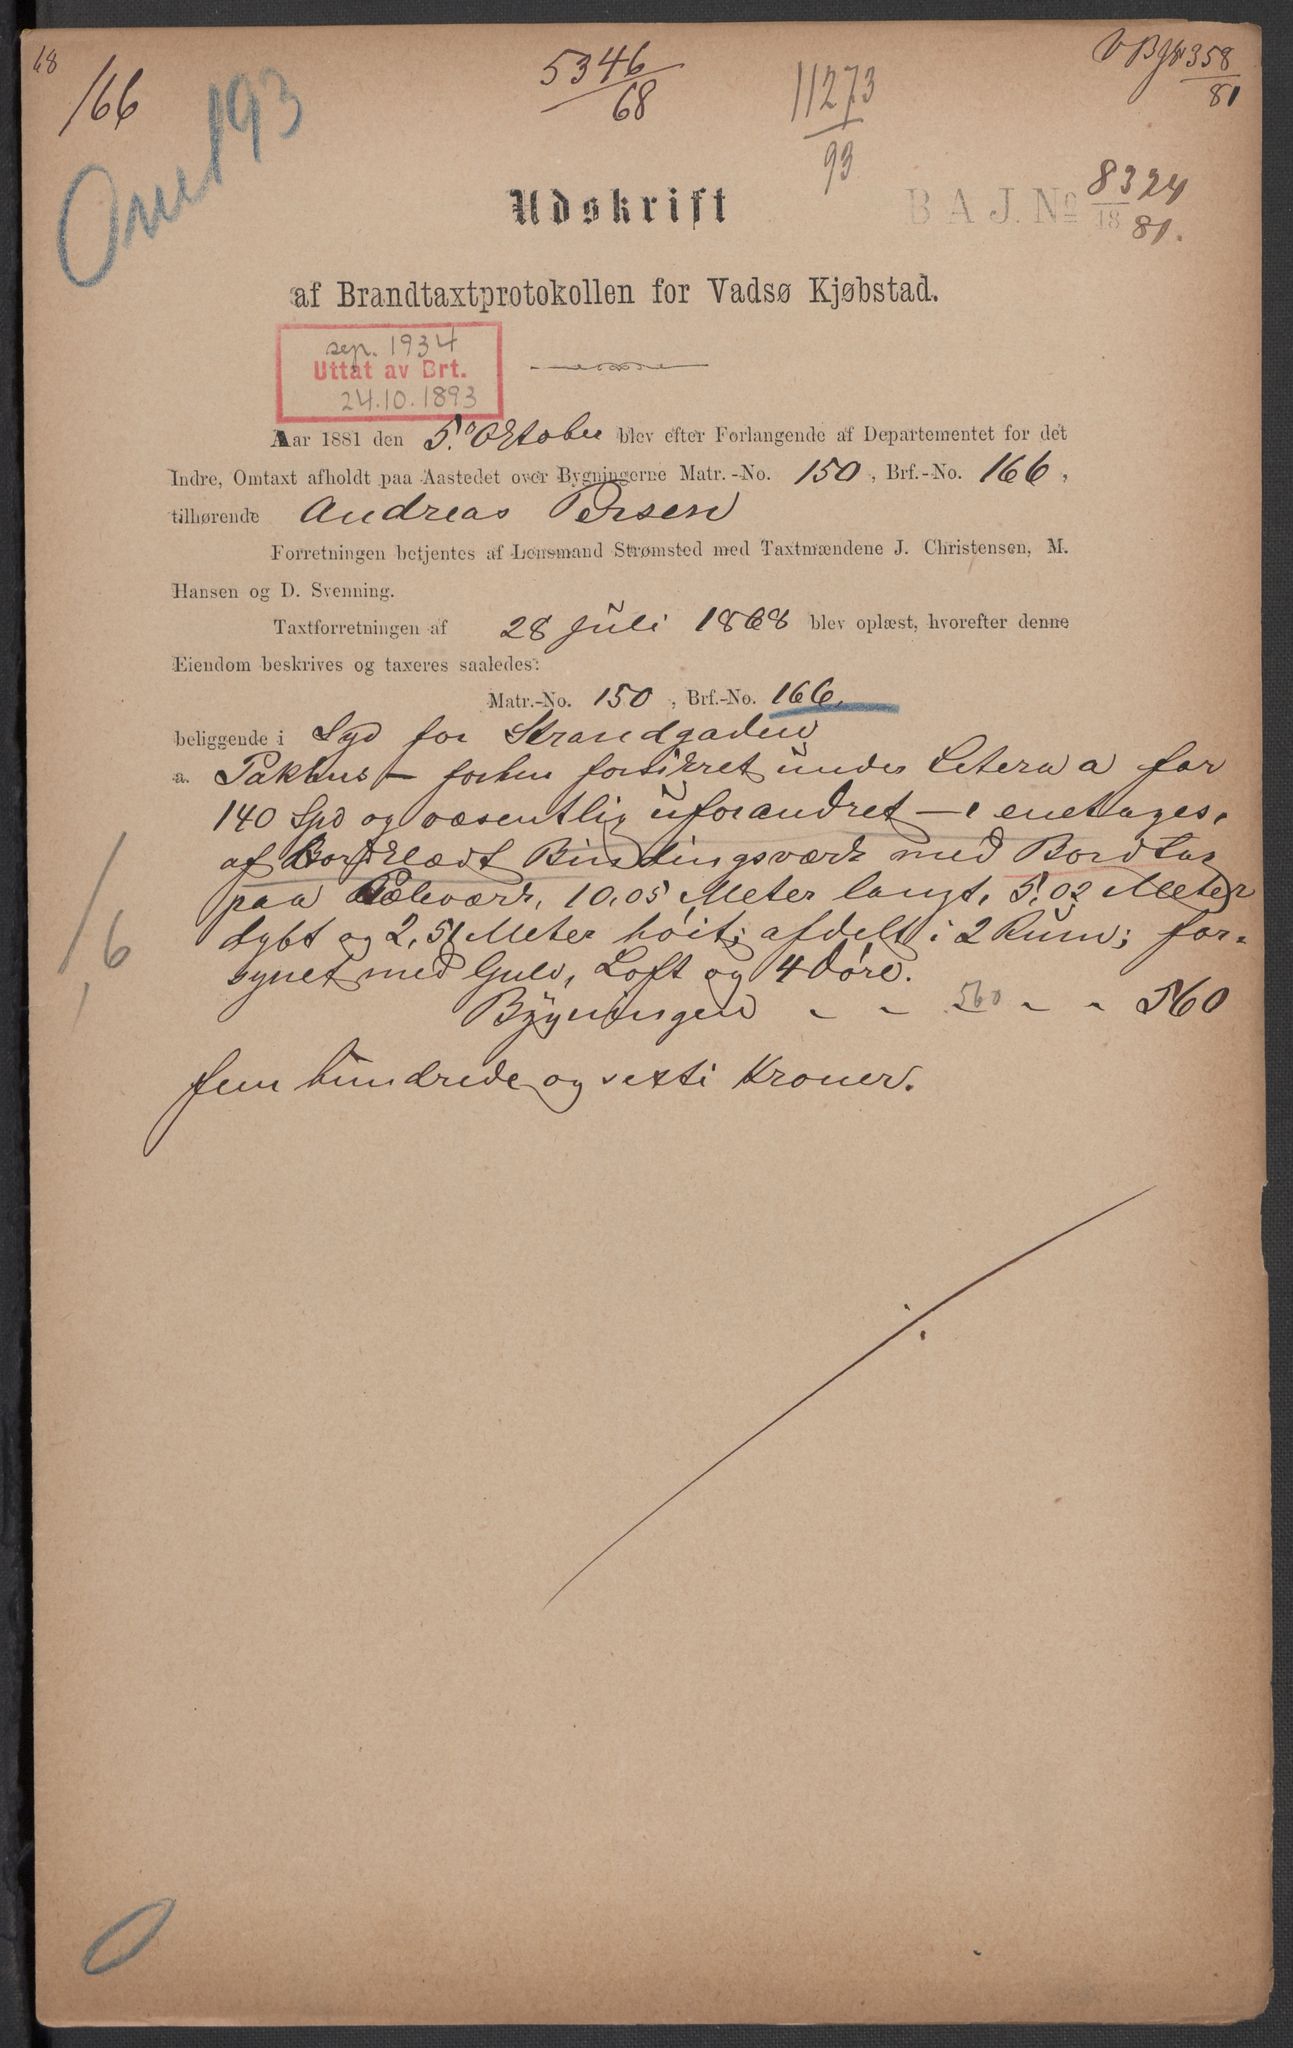 68
166
5346
68
11273
93
V B J№ 358
81
Om 193
Udskrift
B A J. No 8324
18 81.
af Brandtaxtprotokollen for Vadsø Kjøbstad.
sep. 1934
Uttat av Brt.
24.10.1893
Aar 1881 den 5. October blev efter Forlangende af Departementet for det
Indre, Omtaxt afholdt paa Aastedet over Bygningerne Matr.-No. 150, Brf.-No. 166,
tilhørende Andreas Persen
Forretningen betjentes af Lensmand Strømsted med Taxtmændene J. Christensen, M.
Hansen og D. Svenning.
Taxtforretningen af 28 Juli 1868 blev oplæst, hvorefter denne
Eiendom beskrives og taxeres saaledes:
Matr.-No. 150, Brf.-No. 166.
beliggende i Syd for Strandgaden
a. Pakhus – forhen forsikret under Litera a for
140 Spd og væsentlig uforandret – enetages,
af Bordklædt Bindingsværk med Bordtag
paa Pæleværk, 10,05 Meter langt, 5,02 Meter
dybt og 2,51 Meter höit; afdelt i 2 Rum; for-
synet med Gulv, Loft og 4 Döre.
Bygningen - - 560 - - 560
fem hundrede og sexti Kroner.
1/6
1